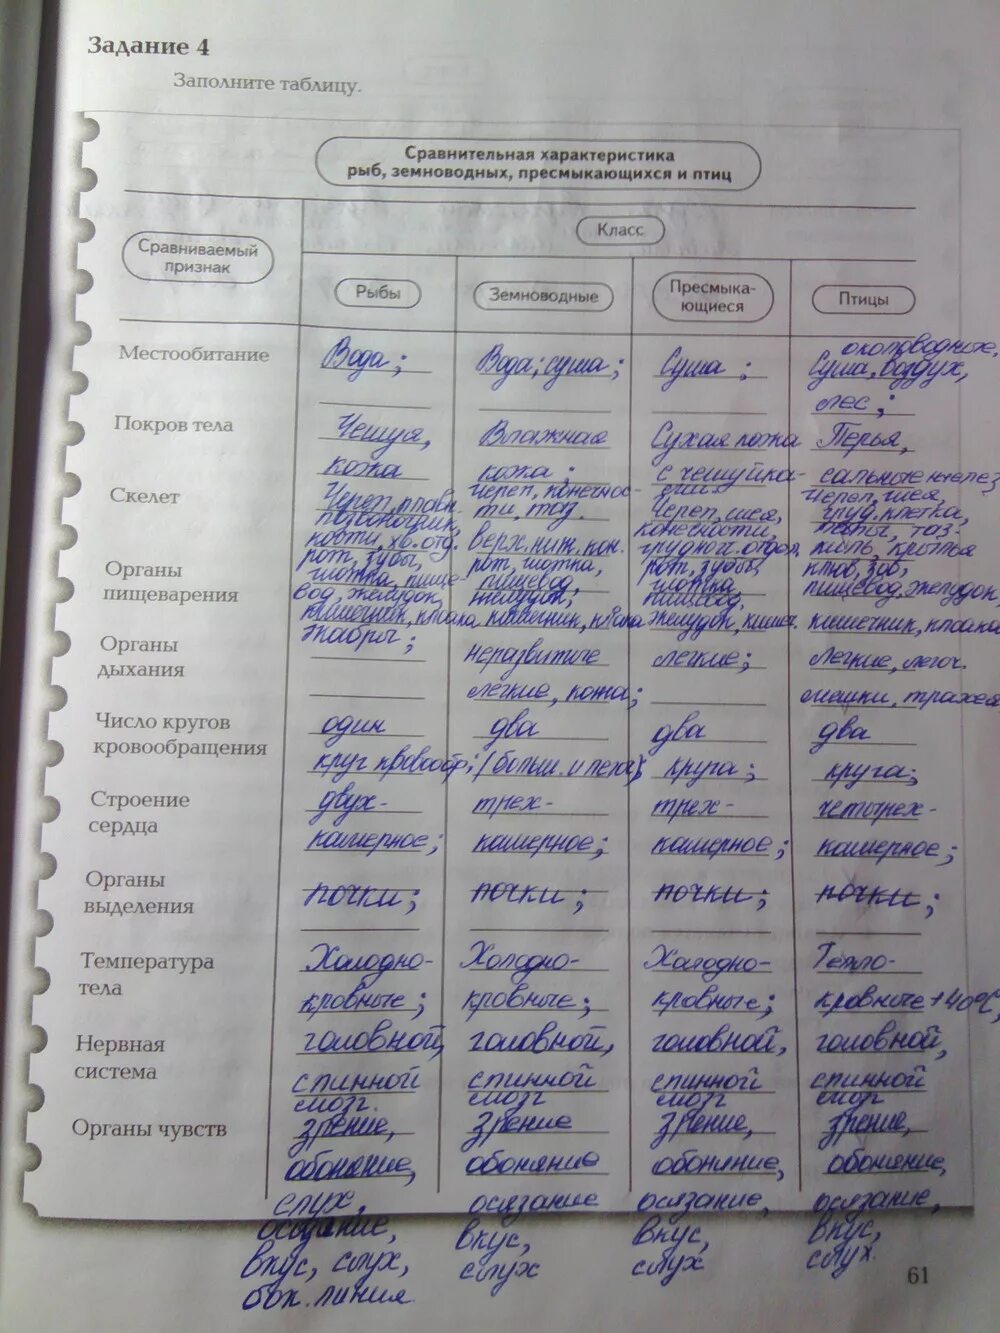 Задание 4
Заполните таблицу.
Сравнительная характеристика
рыб, земноводных, пресмыкающихся и птиц
Класс
Сравниваемый
признак
Рыбы
Земноводные
Пресмыка-
ющиеся
Птицы
Местообитание
Вода;
Вода; суша;
Суша ;
околоводные,
Суша, воздух,
лес;
Покров тела
Чешуя,
кожа
Влажная
кожа;
Сухая кожа
с чешуйка-
ми
Перья,
сальные желез
Скелет
Череп, плавн.
позвоночник,
кости, хв. отд.
череп, конечнос-
ти, таз.
верх. ниж. кон.
Череп, шея,
конечности,
грудной. отдел
череп, шея,
груд. клетка,
таз-
киль, крылья
Органы
пищеварения
рот, зубы,
глотка, пище-
вод, желудок,
кишечник, клоака
рот, глотка,
пищевод,
желудок,
кишечник, клоака
рот, зубы,
глотка,
пищевод,
желудок, кишеч.
клюв, зоб,
пищевод, желудок
кишечник, клоака
Органы
дыхания
Жабры;
неразвитые
легкие, кожа;
легкие;
Легкие, легоч.
мешки, трахея
Число кругов
кровообращения
один
круг кровообр;
два
(больш. и легоч)
два
круга;
два
круга;
Строение
сердца
двух-
камерное;
трех-
камерное;
трех-
камерное;
четырех-
камерное;
Органы
выделения
почки;
почки;
почки;
почки;
Температура
тела
Холодно-
кровные;
Холодно-
кровные;
Холодно-
кровные;
Тепло-
кровные +40°C,
Нервная
система
головной,
спинной
мозг.
головной,
спинной
мозг
головной,
спинной
мозг
головной,
спинной
мозг
Органы чувств
зрение,
обоняние,
слух,
осязание,
вкус, слух,
бок. линия
зрение
обоняние
осязание
вкус,
слух
зрение,
обоняние,
осязание,
вкус,
слух
зрение,
обоняние,
осязание,
вкус,
слух.
61